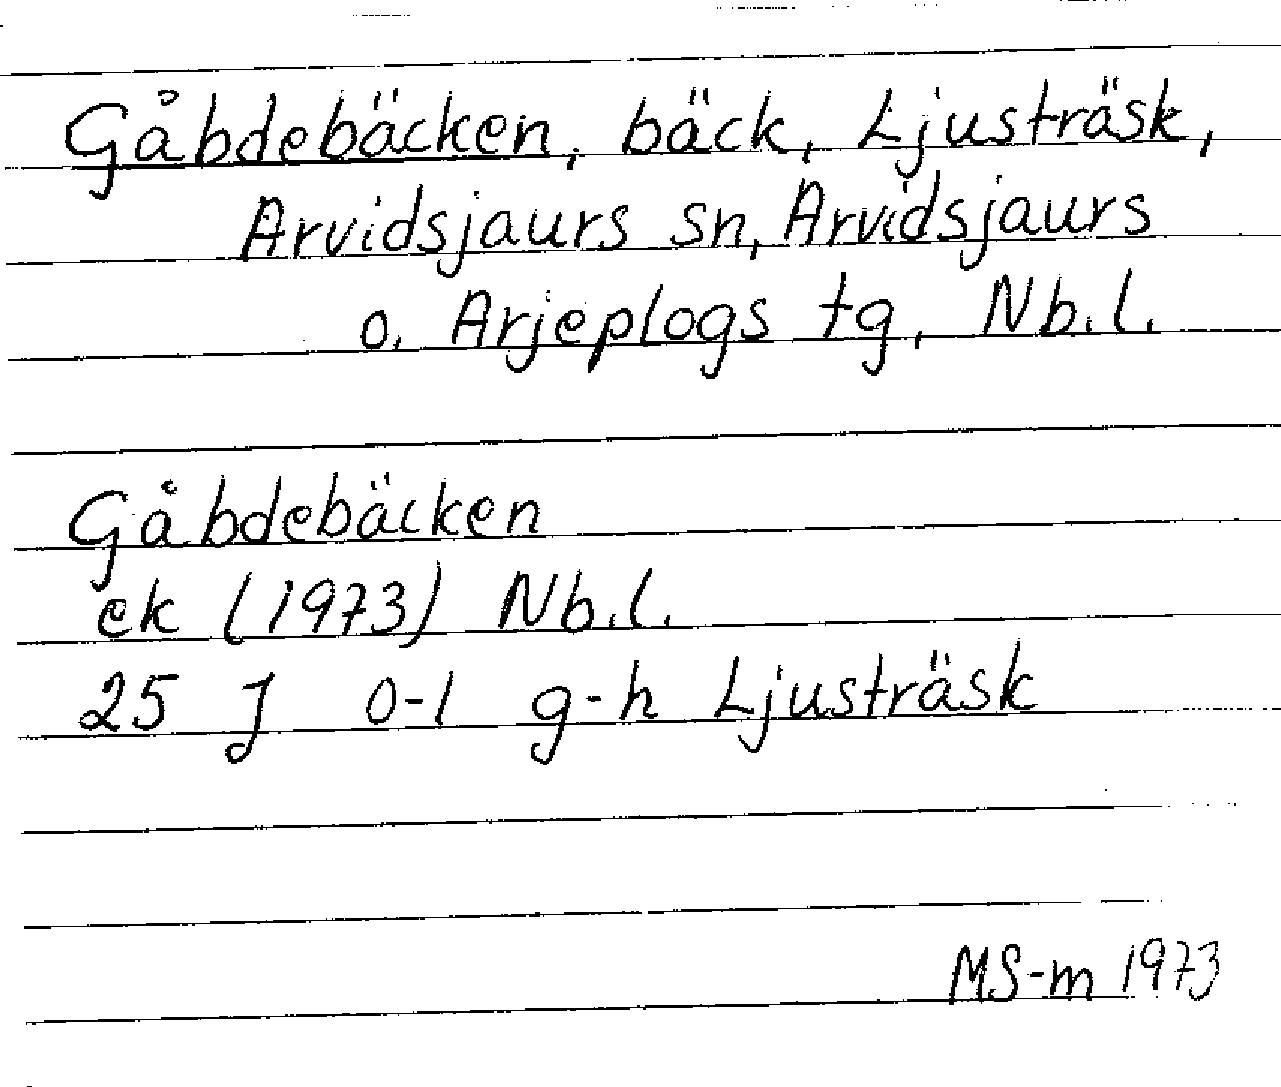 Gåbdebäcken, bäck, Ljusträsk,
Arvidsjaurs sn, Arvidsjaurs
o. Arjeplogs tg, Nb.l.
Gåbdebäcken
ek (1973) Nb.l.
25 J 0-1 g-h Ljusträsk
MS-m 1973